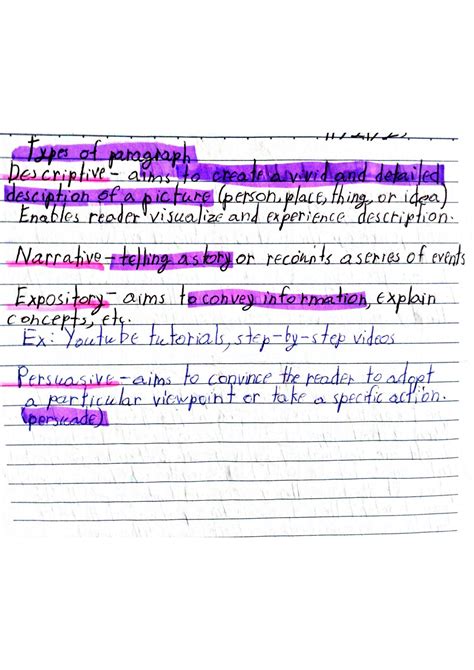 Types of paragraph
Descriptive - aims to create a vivid and detailed
desciption of a picture (person, place, thing, or idea)
Enables reader visualize and experience description.
Narrative - telling a story or recounts a series of events
Expository - aims to convey information, explain
concepts, etc.
Ex: Youtube tutorials, step-by-step videos
Persuasive - aims to convince the reader to adopt
a particular viewpoint or take a specific action.
(persuade)